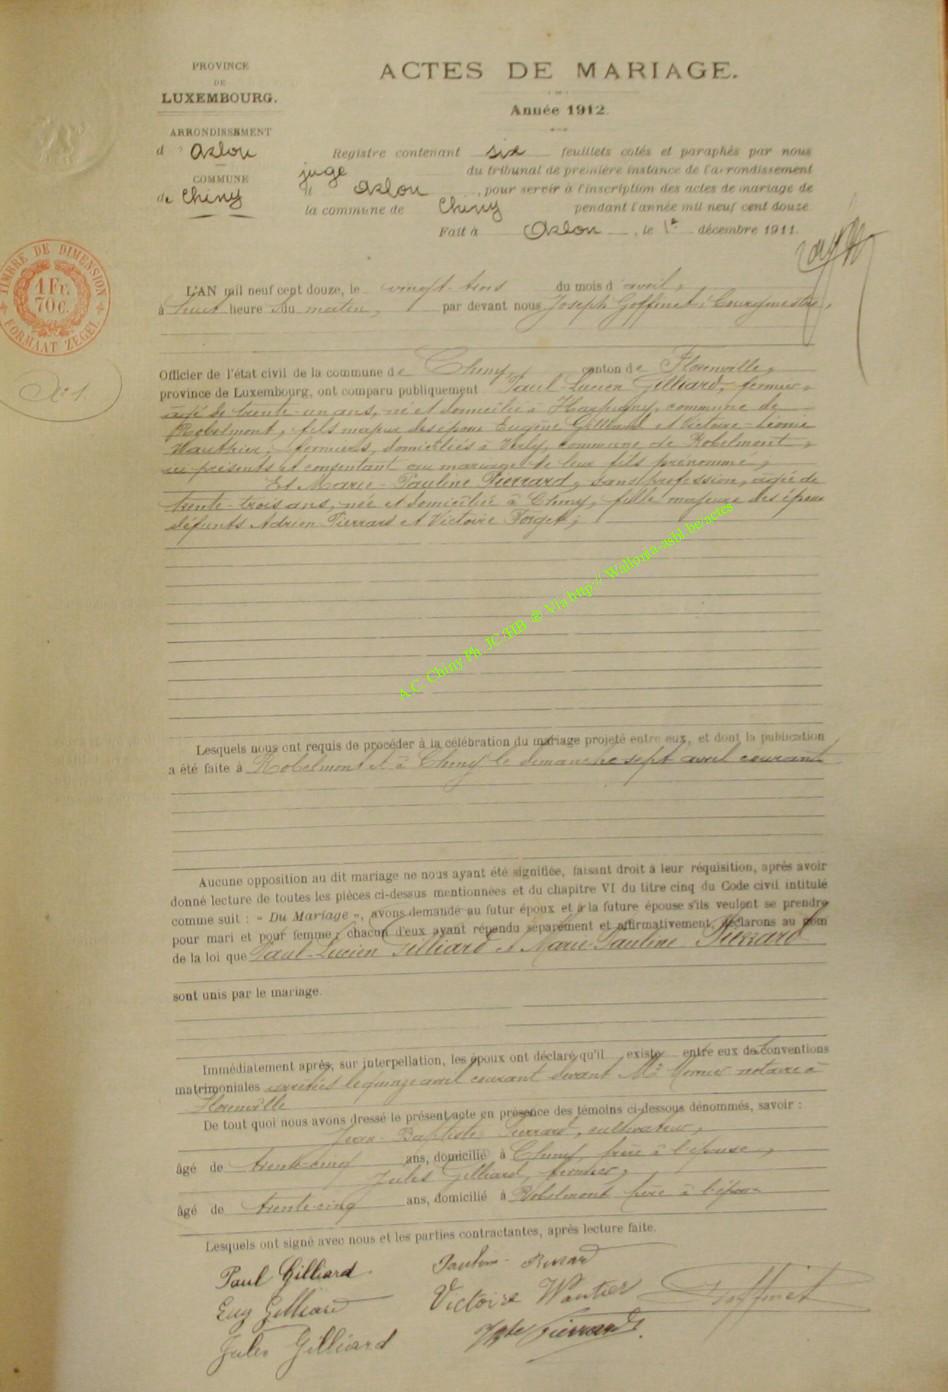 PROVINCE
DE
LUXEMBOURG.
ARRONDISSEMENT
d'Arlon
COMMUNE
de Chiny
ACTES DE MARIAGE.
Année 1912.
Registre contenant six feuillets cotés et paraphés par nous
juge du tribunal de première instance de l'arrondissement
d' Arlon, pour servir à l'inscription des actes de mariage de
la commune de Chiny pendant l'année mil neuf cent douze
Fait à Arlon, le 1er décembre 1911.
TIMBRE DE DIMENSION
1 Fr.
70 c.
FORMAAT ZEGEL
No 1
L'AN mil neuf cept douze, le vingt-trois du mois d'avril,
à huit heure du matin, par devant nous Joseph Goffinet, Bourgmestre,
Officier de l'état civil de la commune de Chiny, canton de Florenville,
province de Luxembourg, ont comparu publiquement Paul-Lucien Gilliard, fermier,
âgé de trente-un ans, né et domicilié à Harpigny, commune de
Robelmont, fils majeur des époux Eugène Gilliard et Victoire-Léonie
Wauthier, fermiers, domiciliés à commune de Robelmont,
ici présents et consentant au mariage de leur fils prénommé,
Et Marie-Pauline Pierrard, sans profession, âgée de
trente-trois ans, née et domiciliée à Chiny, fille majeure des époux
défunts Adrien Pierrard et Victoire Forget,
A.C. Chiny Ph. JC HB & Via http:// Wallonia-asbl.be/actes
Lesquels nous ont requis de procéder à la célébration du mariage projeté entre eux, et dont la publication
a été faite à Robelmont et à Chiny le dimanche sept avril courant
Aucune opposition au dit mariage ne nous ayant été signifiée, faisant droit à leur réquisition, après avoir
donné lecture de toutes les pièces ci-dessus mentionnées et du chapitre VI du titre cinq du Code civil intitulé
comme suit : « Du Mariage », avons demandé au futur époux et à la future épouse s'ils veulent se prendre
pour mari et pour femme; chacun d'eux ayant répendu séparément et affirmativement, déclarons au nom
de la loi que Paul-Lucien Gilliard et Marie-Pauline Pierrard
sont unis par le mariage.
Immédiatement après, sur interpellation, les époux ont déclaré qu'il existe entre eux de conventions
matrimoniales arrêtées le quinze avril courant devant Me notaire à
Florenville
De tout quoi nous avons dressé le présent acte en présence des témoins ci-dessous dénommés, savoir :
Jean-Baptiste Pierrard, cultivateur,
âgé de trente-cinq ans, domicilié à Chiny, frère à l'épouse,
Jules Gilliard, fermier,
âgé de trente-cinq ans, domicilié à Robelmont frère à l'époux
Lesquels ont signé avec nous et les parties contractantes, après lecture faite.
Paul Gilliard
Eug Gilliard
Jules Gilliard
Pauline Pierrard
Victoire Wautier
Pierrard
Goffinet